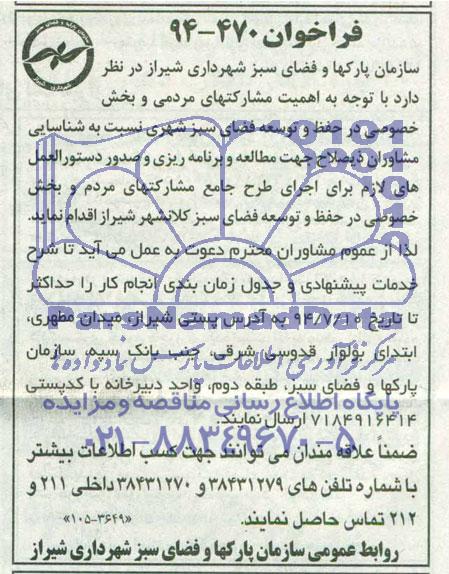 فراخوان ۴۷۰-۹۴
سازمان پارکها و فضای سبز شهرداری شیراز در نظر
دارد با توجه به اهمیت مشارکتهای مردمی و بخش
خصوصی در حفظ و توسعه فضای سبز شهری نسبت به شناسایی
مشاوران ذیصلاح جهت مطالعه و برنامه ریزی و صدور دستورالعمل
های لازم برای اجرای طرح جامع مشارکتهای مردم و بخش
خصوصی در حفظ و توسعه فضای سبز کلانشهر شیراز اقدام نماید.
لذا از عموم مشاوران محترم دعوت به عمل می آید تا شرح
خدمات پیشنهادی و جدول زمان بندی انجام کار را حداکثر
تا تاریخ ۹۴/۷/۱۰ به آدرس پستی شیراز، میدان مطهری،
ابتدای بولوار قدوسی شرقی، جنب بانک سپه، سازمان
پارکها و فضای سبز، طبقه دوم، واحد دبیرخانه با کدپستی
۷۱۸۴۹۱۶۴۱۴ ارسال نمایند.
ضمناً علاقه مندان می توانند جهت کسب اطلاعات بیشتر
با شماره تلفن های ۳۸۴۳۱۲۷۹ و ۳۸۴۳۱۲۷۰ داخلی ۲۱۱ و
۲۱۲ تماس حاصل نمایند.
«۱۰۵-۳۶۴۹»
روابط عمومی سازمان پارکها و فضای سبز شهرداری شیراز
ParsNamadData
مرکز فرآوری اطلاعات پارس نماد داده ها
پایگاه اطلاع رسانی مناقصه و مزایده
۰۲۱-۸۸۳۴۹۶۷۰-۵